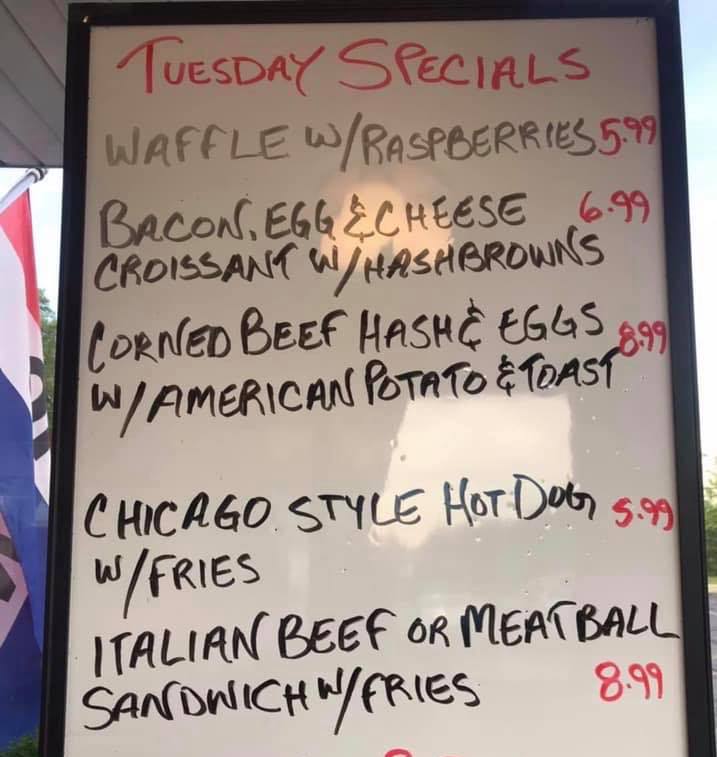 TUESDAY SPECIALS
WAFFLE W/RASPBERRIES 5.99
BACON, EGG & CHEESE 6.99
CROISSANT W/HASHBROWNS
CORNED BEEF HASH & EGGS 8.99
W/AMERICAN POTATO & TOAST
CHICAGO STYLE HOT DOG 5.99
W/FRIES
ITALIAN BEEF OR MEATBALL
SANDWICH W/FRIES 8.99